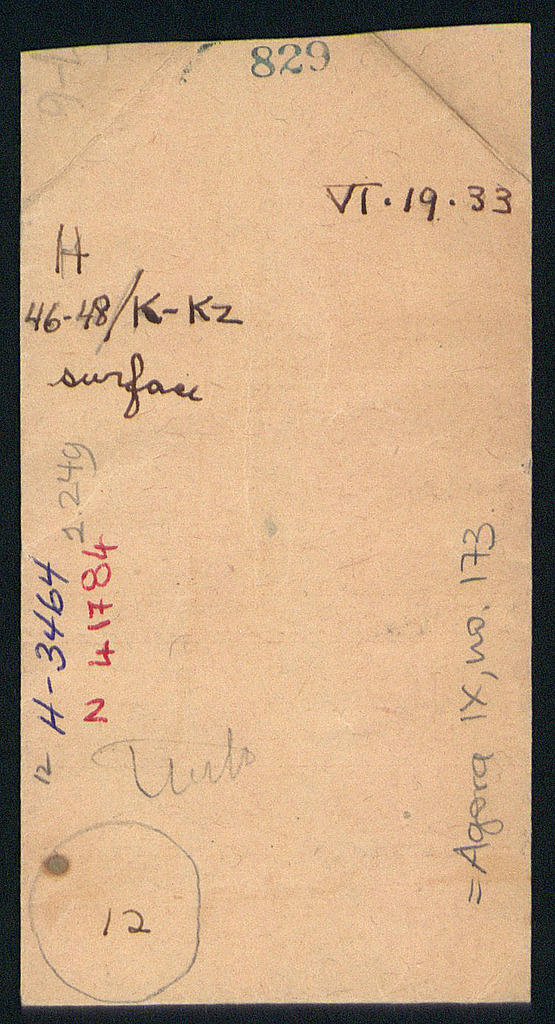 829
VI·19·33
H
46-48/K-K2
surface
2.24g
12 H-3464
N 41784
12
= Agora IX, no. 173.